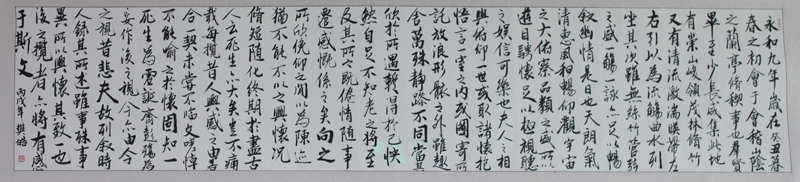 永和九年歲在癸丑暮
春之初會于會稽山陰
之蘭亭脩稧事也羣賢
畢至少長咸集此地
有崇山峻領茂林脩竹
又有清流激湍暎帶左
右引以為流觴曲水列
坐其次雖無絲竹管弦
之盛一觴一詠亦足以暢
叙幽情是日也天朗氣
清惠風和暢仰觀宇宙
之大俯察品類之盛所以
遊目騁懷足以極視聽
之娛信可樂也夫人之相
與俯仰一世或取諸懷抱
悟言一室之內或因寄所
託放浪形骸之外雖趣
舍萬殊靜躁不同當其
欣於所遇蹔得於己怏
然自足不知老之將至
及其所之既惓情隨事
遷感慨係之矣向之
所欣俛仰之間以為陳迹
猶不能不以之興懷況
脩短隨化終期於盡古
人云死生亦大矣豈不痛
哉每攬昔人興感之由若
合一契未嘗不臨文嗟悼
不能喻之於懷固知一
死生為虛誕齊彭殤為
妄作後之視今亦由今
之視昔悲夫故列叙時
人錄其所述雖世殊事
異所以興懷其致一也
後之攬者亦將有感
于斯文 丙戌年